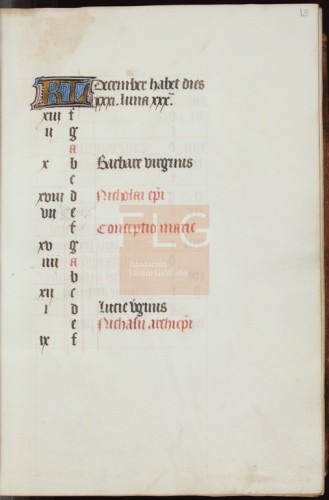 KL December habet dies
xxxi. luna xxx.
xiii f
ii g
a
x b Barbare virginis
c
xviii d Nicholai epi
vii e
f Conceptio marie
xv g
iiii a
b
xii c
i d Lucie vginis
e Nichasii archiepi
ix f
FLG
Fundación
Lázaro Galdiano